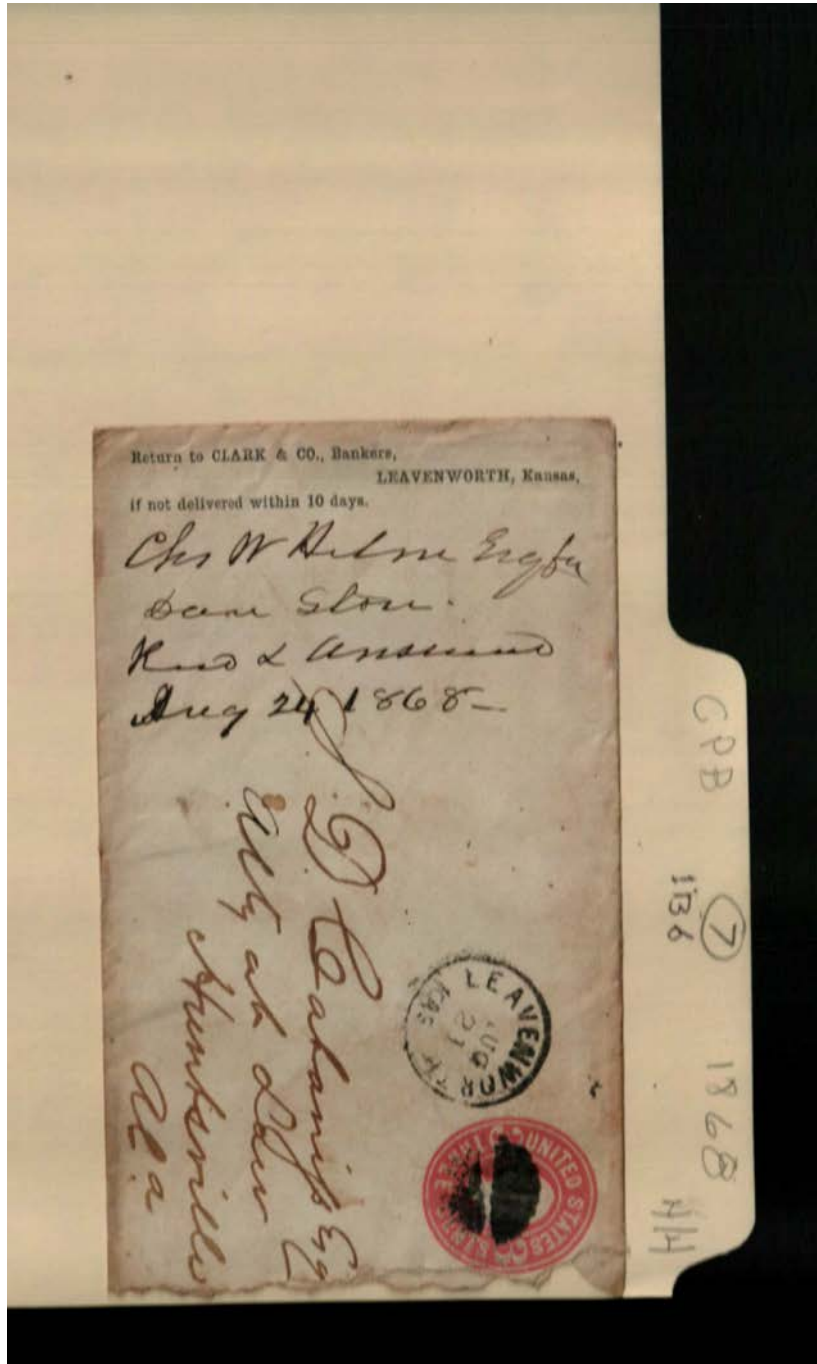 Return to CLARK & CO., Bankers,
LEAVENWORTH, Kansas,
if not delivered within 10 days.
Chs W Helme Esq
Recd & Answered
Aug 24 1868
S D Cabaniss Esq
Atty at Law
Huntsville
Ala
LEAVENWORTH
KAS
AUG
21
UNITED STATES
THREE CENTS
CPB
7
1B6
1868
HH